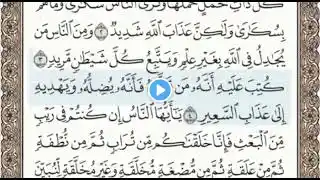 كُلُّ ذَاتِ حَمْلٍ حَمْلَهَا وَتَرَى النَّاسَ سُكَارَىٰ وَمَا هُم
بِسُكَارَىٰ وَلَٰكِنَّ عَذَابَ اللَّهِ شَدِيدٌ ٢ وَمِنَ النَّاسِ مَن
يُجَادِلُ فِي اللَّهِ بِغَيْرِ عِلْمٍ وَيَتَّبِعُ كُلَّ شَيْطَانٍ مَّرِيدٍ ٣
كُتِبَ عَلَيْهِ أَنَّهُ مَن فَأَنَّهُ يُضِلُّهُ وَيَهْدِيهِ
إِلَىٰ عَذَابِ السَّعِيرِ ٤ يَا أَيُّهَا النَّاسُ إِن كُنتُمْ فِي رَيْبٍ
مِّنَ الْبَعْثِ فَإِنَّا خَلَقْنَاكُم مِّن تُرَابٍ ثُمَّ مِن نُّطْفَةٍ
ثُمَّ مِنْ عَلَقَةٍ ثُمَّ مِن مُّضْغَةٍ مُّخَلَّقَةٍ وَغَيْرِ مُخَلَّقَةٍ لِّنُبَيِّنَ